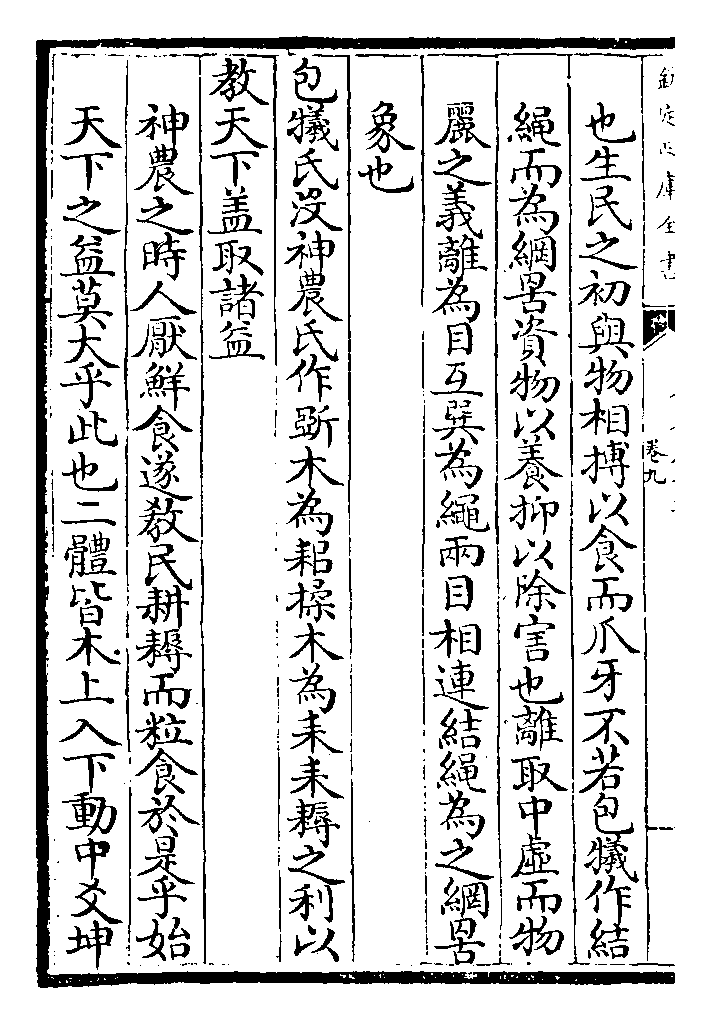 欽定四庫全書
卷九
也生民之初與物相搏以食而爪牙不若包犧作結
繩而為網罟資物以養抑以除害也離取中虛而物
麗之義離為目互巽為繩兩目相連結繩為之網罟
象也
包犧氏沒神農氏作斲木為耜揉木為耒耒耨之利以
教天下蓋取諸益
神農之時人厭鮮食遂教民耕耨而粒食於是乎始
天下之益莫大乎此也二體皆木上入下動中爻坤